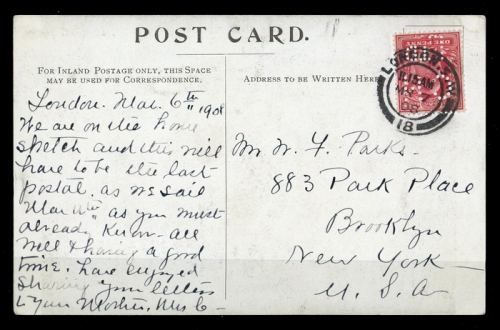 POST CARD.
FOR INLAND POSTAGE ONLY, THIS SPACE
MAY BE USED FOR CORRESPONDENCE.
London. Mar. 6th 1908
We are on the home
stretch and this will
have to be the last
postal. as we sail
Mar 11th as you must
already know. all
well & having a good
time. have enjoyed
sharing your letters
to your Mother, Mrs C-
ADDRESS TO BE WRITTEN HERE
Mr W. F. Parks.
883 Park Place
Brooklyn
New York
U. S. A
ONE PENNY
LONDON. W.
11.15 AM
08
18